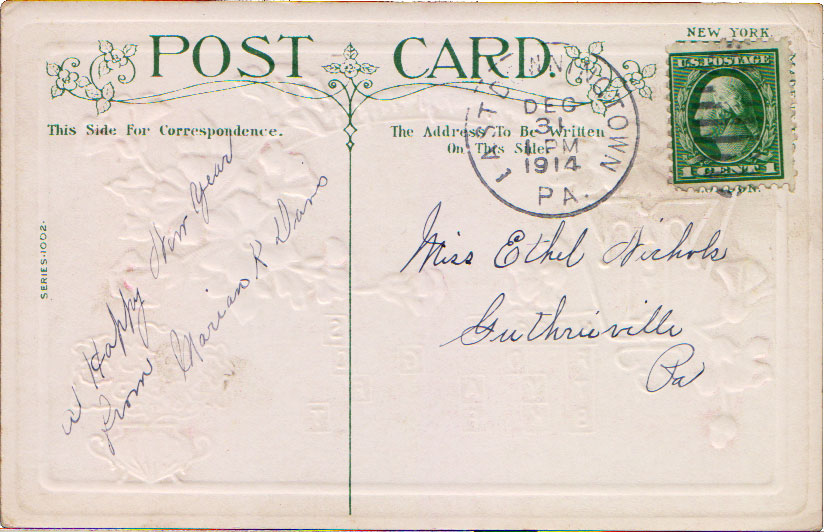 NEW YORK
POST CARD.
U.S. POSTAGE
1 CENTS 1
This Side For Correspondence.
The Address To Be Written
On This Side.
DEC
31
1 PM
1914
PA.
SERIES-1002.
A Happy New Year
From Marian K Davis
Miss Ethel Nichols
Guthriesville
Pa